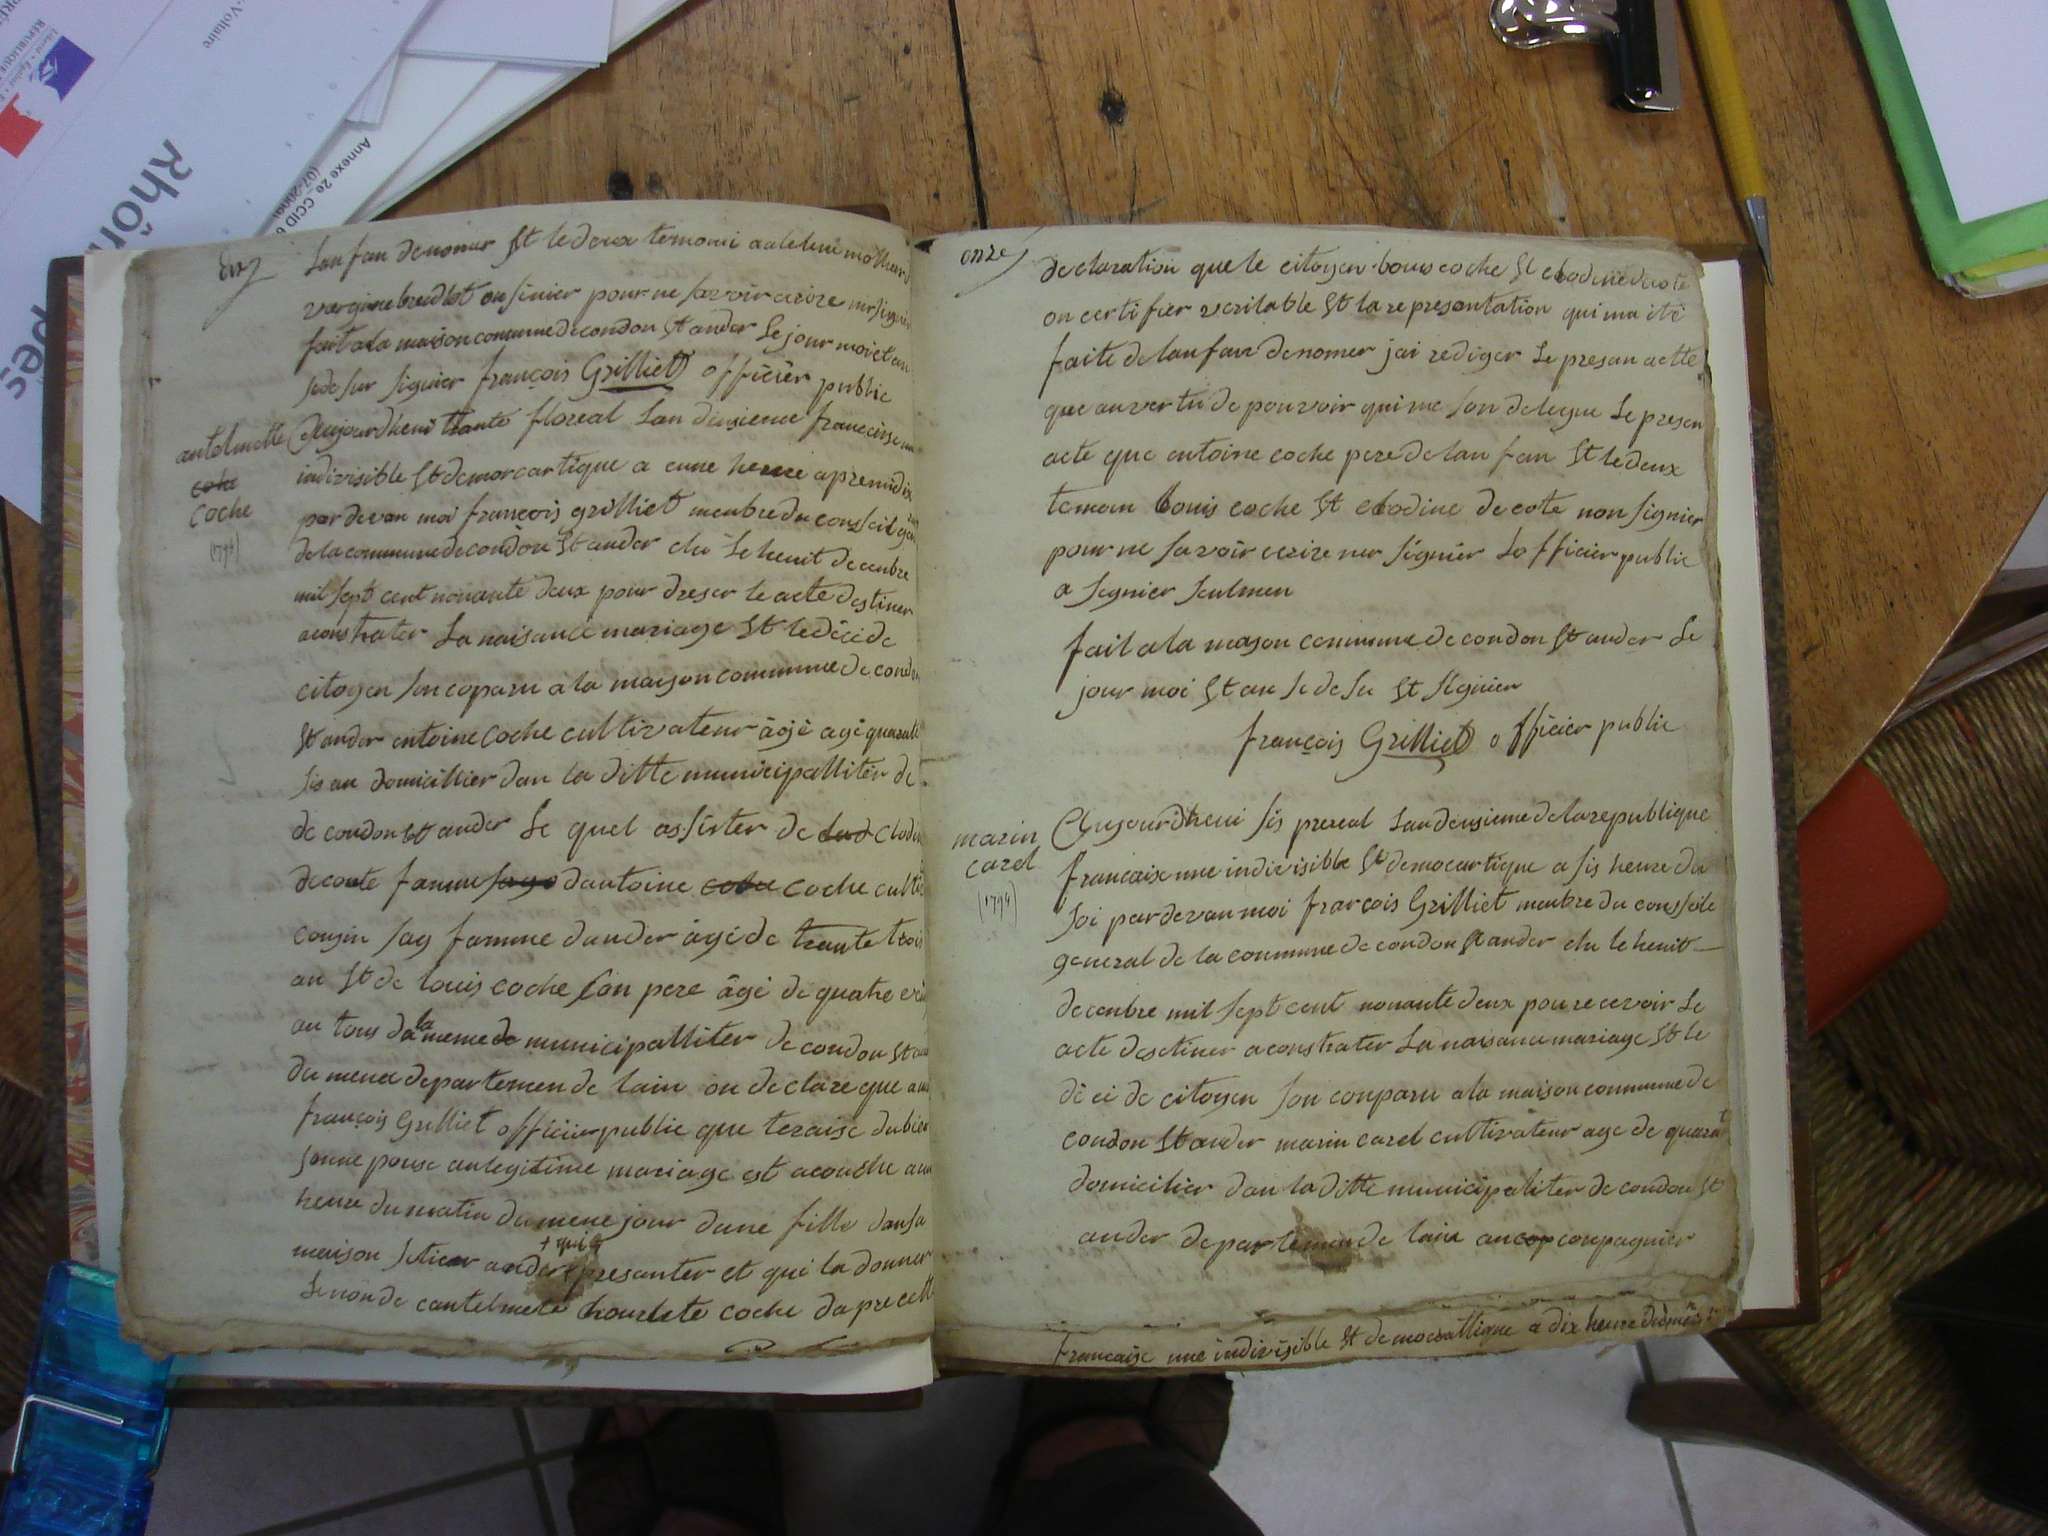 Voltaire
Rhôn
Annexe 2e_CCID
dix
lanfan denomer St le deux temoin
vergine ou sinier pour ne savoir ecrire
fait a la maison commune de condon St ander le jour moi et an
sede sur signier françois Grilliet officier public
antelmette
cohe
coche
(1794)
aujourdheui trante floreal lan deusieme francaise
indivisible St demorcartique a eune heure apremidi
par devan moi françois grilliet menbre du conseil
de la commune de condon St ander elu le heuit decenbre
mil sept cent nonante deux pour dreser le acte destiner
a constrater la naisance mariage St le déci de
citoyen son coparu a la maison commune de condon
St ander entoine coche cultivateur âgé agé
sis an domicillier dan la ditte municipalliter de
de condon St ander le quel assister de
decoute famme dantoine cohe coche
cousin famme dander âgé de trante trois
an St de louis coche son pere âgé de quatre
an tous da la meme de municipalliter de condon St
du meme departemen de lain on declare que
françois Grilliet officier public que teraise dubier
sonne pouse an legitime mariage est acouche
heure du matin du mene jour dune fille dan sa
maison presanter et qui la donner
+ qui
le non de coche
onze
declaration que le citoyen louis coche St clodine decote
on certifier veritable St la representation qui ma ité
faite de lanfan denomer jai rediger le presan actte
que an vertu de pouvoir qui me son delegue le presen
acte que entoine coche pere de lan fan St le deux
temoin louis coche St clodine de cote non signier
pour ne savoir ecrire ner signier lofficier public
a signier seulmen
fait a la maison commune de condon St ander le
jour moi St an se de su St signier
françois Grilliet officier public
marin
carel
(1794)
aujourdheui sis prereal lan deusieme de la republique
francaise une indivisible St democartique a sis heure du
soi par devan moi françois Grilliet menbre du consseile
general de la commune de condon St ander elu le heuit
decenbre mil sept cent nonante deux pour recevoir le
acte desetiner a constrater la naisance mariage St le
déci de citoyen son conparu a la maison commune de
condon St ander marin carel cultivateur age de quarant
domicilier dan la ditte municipaliter de condon St
ander departemen de lain conpagnier
francaise une indivisible St de mocrattique a dix heure